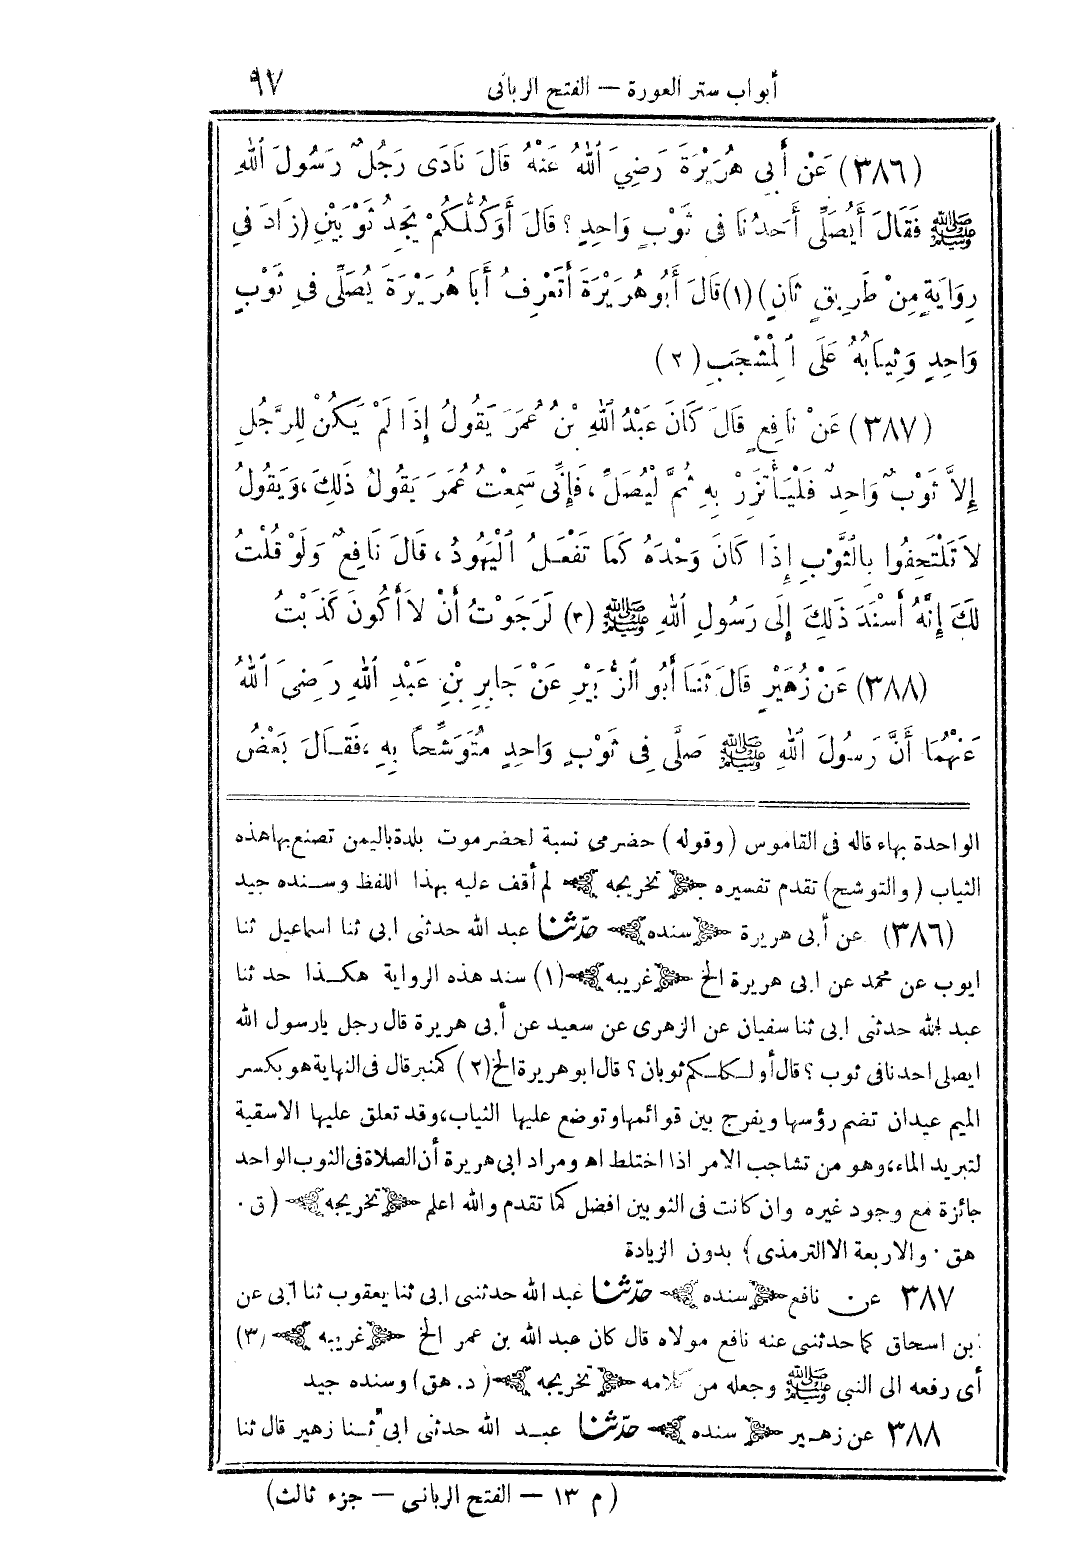 أبواب ستر العورة — الفتح الربانى ٩٧
(٣٨٦) عَنْ أَبِى هُرَيْرَةَ رَضِيَ ٱللهُ عَنْهُ قَالَ نَادَى رَجُلٌ رَسُولَ ٱللهِ
ﷺ فَقَالَ أَيُصَلِّى أَحَدُنَا فِى ثَوْبٍ وَاحِدٍ؟ قَالَ أَوَكُلُّكُمْ يَجِدُ ثَوْبَيْنِ (زَادَ فِى
رِوَايَةٍ مِنْ طَرِيقٍ ثَانٍ)(١)قَالَ أَبُو هُرَيْرَةَ أَتَعْرِفُ أَبَا هُرَيْرَةَ يُصَلِّى فِى ثَوْبٍ
وَاحِدٍ وَثِيَابُهُ عَلَى ٱلْمِشْجَبِ (٢)
(٣٨٧) عَنْ نَافِعٍ قَالَ كَانَ عَبْدُ ٱللهِ بْنُ عُمَرَ يَقُولُ إِذَا لَمْ يَكُنْ لِلرَّجُلِ
إِلاَّ ثَوْبٌ وَاحِدٌ فَلْيَأْتَزِرْ بِهِ ثُمَّ لْيُصَلِّ، فَإِنِّى سَمِعْتُ عُمَرَ يَقُولُ ذَلِكَ، وَيَقُولُ
لاَ تَلْتَحِفُوا بِالثَّوْبِ إِذَا كَانَ وَحْدَهُ كَمَا تَفْعَلُ ٱلْيَهُودُ، قَالَ نَافِعٌ وَلَوْ قُلْتُ
لَكَ إِنَّهُ أَسْنَدَ ذَلِكَ إِلَى رَسُولِ ٱللهِ ﷺ (٣) لَرَجَوْتُ أَنْ لاَ أَكُونَ كَذَبْتُ
(٣٨٨) عَنْ زُهَيْرٍ قَالَ ثَنَا أَبُو ٱلزُّبَيْرِ عَنْ جَابِرِ بْنِ عَبْدِ ٱللهِ رَضِىَ ٱللهُ
عَنْهُمَا أَنَّ رَسُولَ ٱللهِ ﷺ صَلَّى فِى ثَوْبٍ وَاحِدٍ مُتَوَشِّحاً بِهِ، فَقَالَ بَعْضُ
الواحدة بهاء قاله فى القاموس (وقوله) حضرمى نسبة لحضرموت بلدة باليمن تصنع بها هذه
الثياب (والتوشح) تقدم تفسيره ﴿تخريجه﴾ لم أقف عليه بهذا اللفظ وسنده جيد
(٣٨٦) عن أبى هريرة ﴿سنده﴾ حدّثنا عبد الله حدثنى ابى ثنا اسماعيل ثنا
ايوب عن محمد عن ابى هريرة الخ ﴿غريبه﴾ (١) سند هذه الرواية هكذا حدثنا
عبد الله حدثنى ابى ثنا سفيان عن الزهرى عن سعيد عن أبى هريرة قال رجل يارسول الله
ايصلى احدنا فى ثوب؟ قال أولكلكم ثوبان؟ قال ابو هريرة الخ (٢) كمنبر قال فى النهاية هو بكسر
الميم عيدان تضم رؤسها ويفرج بين قوائمها وتوضع عليها الثياب، وقد تعلق عليها الاسقية
لتبريد الماء، وهو من تشاجب الامر اذا اختلط اه ومراد ابى هريرة أن الصلاة فى الثوب الواحد
جائزة مع وجود غيره وان كانت فى الثوبين افضل كما تقدم والله اعلم ﴿تخريجه﴾ (ق.
هق. والاربعة الا الترمذى) بدون الزيادة
٣٨٧ عن نافع ﴿سنده﴾ حدّثنا عبد الله حدثنى ابى ثنا يعقوب ثنا ابى عن
ابن اسحاق كما حدثنى عنه نافع مولاه قال كان عبد الله بن عمر الخ ﴿غريبه﴾ (٣)
أى رفعه الى النبى ﷺ وجعله من كلامه ﴿تخريجه﴾ (د. هق) وسنده جيد
٣٨٨ عن زهير ﴿سنده﴾ حدّثنا عبد الله حدثنى ابى ثنا زهير قال ثنا
(م ١٣ — الفتح الربانى — جزء ثالث)